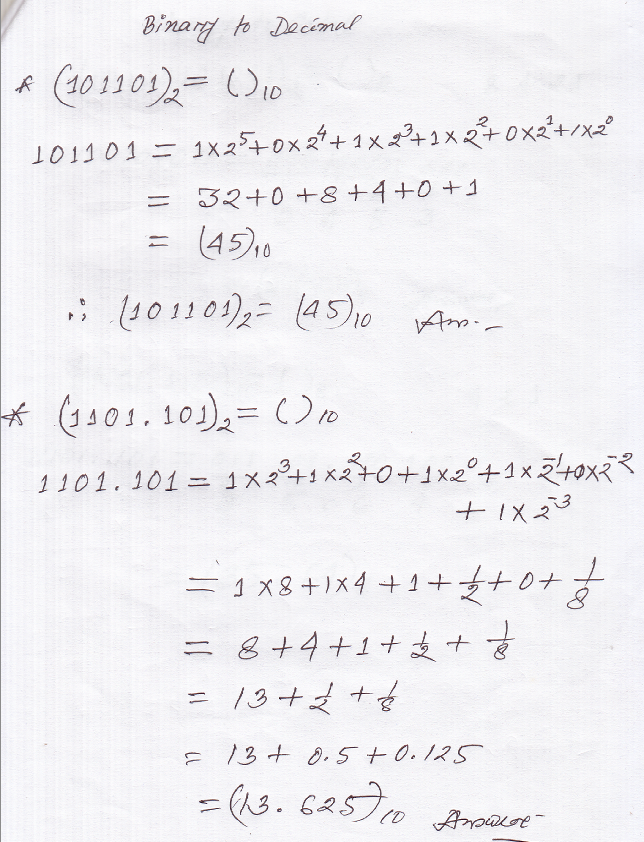 Binary to Decimal
* (101101)₂ = ( )₁₀
101101 = 1×2⁵+0×2⁴+1×2³+1×2²+0×2¹+1×2⁰
= 32+0+8+4+0+1
= (45)₁₀
∴ (101101)₂ = (45)₁₀ Ans.-
* (1101.101)₂ = ( )₁₀
1101.101 = 1×2³+1×2²+0+1×2⁰+1×2⁻¹+0×2⁻²
+ 1×2⁻³
= 1×8+1×4+1+1/2+0+1/8
= 8+4+1+1/2+1/8
= 13+1/2+1/8
= 13+0.5+0.125
= (13.625)₁₀